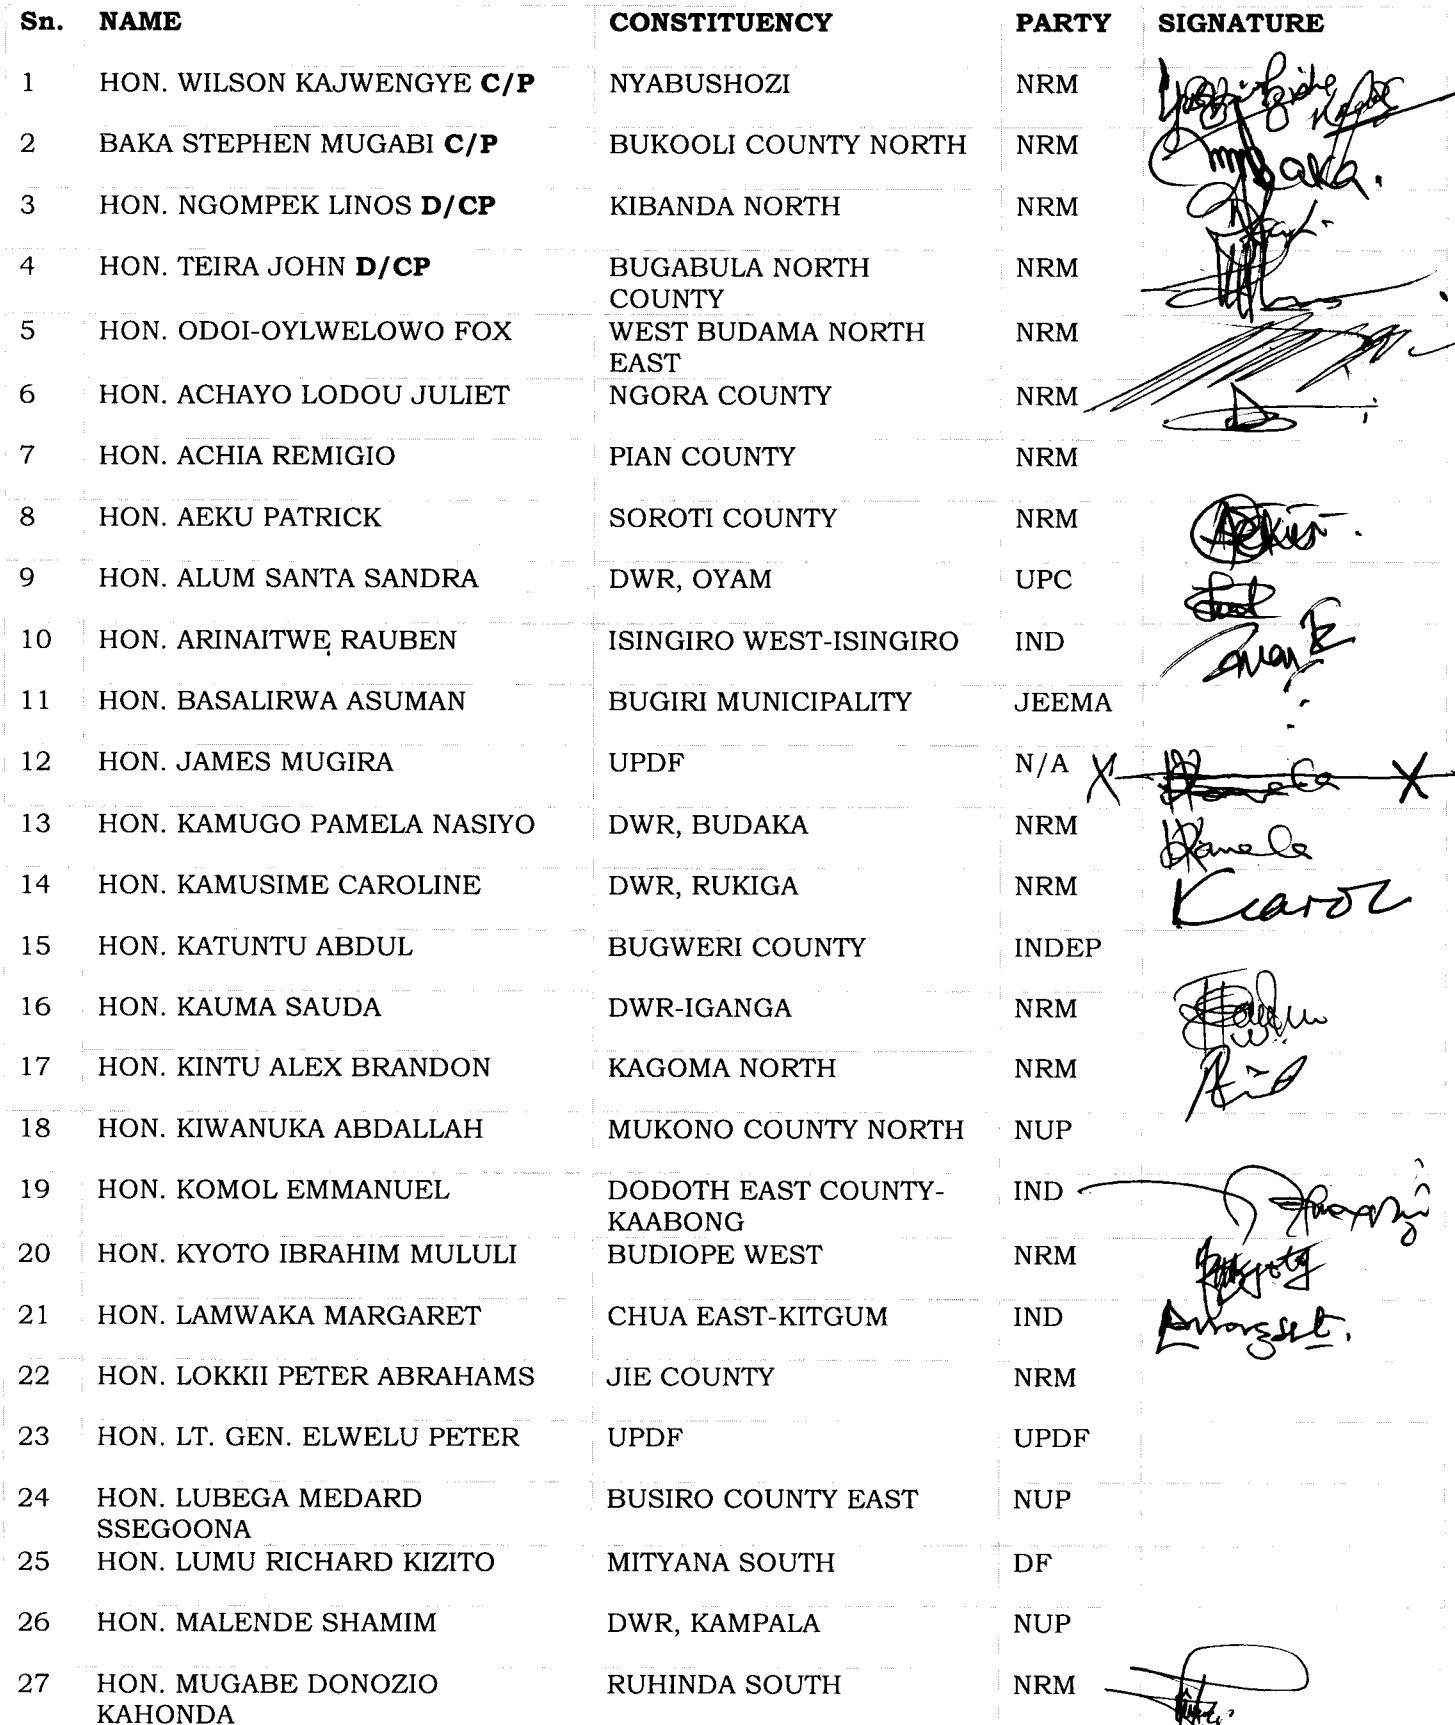 Sn. NAME CONSTITUENCY PARTY SIGNATURE
1 HON. WILSON KAJWENGYE C/P NYABUSHOZI NRM
2 BAKA STEPHEN MUGABI C/P BUKOOLI COUNTY NORTH NRM
3 HON. NGOMPEK LINOS D/CP KIBANDA NORTH NRM
4 HON. TEIRA JOHN D/CP BUGABULA NORTH NRM
COUNTY
5 HON. ODOI-OYLWELOWO FOX WEST BUDAMA NORTH NRM
EAST
6 HON. ACHAYO LODOU JULIET NGORA COUNTY NRM
7 HON. ACHIA REMIGIO PIAN COUNTY NRM
8 HON. AEKU PATRICK SOROTI COUNTY NRM
9 HON. ALUM SANTA SANDRA DWR, OYAM UPC
10 HON. ARINAITWE RAUBEN ISINGIRO WEST-ISINGIRO IND
11 HON. BASALIRWA ASUMAN BUGIRI MUNICIPALITY JEEMA
12 HON. JAMES MUGIRA UPDF N/A X X
13 HON. KAMUGO PAMELA NASIYO DWR, BUDAKA NRM
14 HON. KAMUSIME CAROLINE DWR, RUKIGA NRM
15 HON. KATUNTU ABDUL BUGWERI COUNTY INDEP
16 HON. KAUMA SAUDA DWR-IGANGA NRM
17 HON. KINTU ALEX BRANDON KAGOMA NORTH NRM
18 HON. KIWANUKA ABDALLAH MUKONO COUNTY NORTH NUP
19 HON. KOMOL EMMANUEL DODOTH EAST COUNTY- IND
KAABONG
20 HON. KYOTO IBRAHIM MULULI BUDIOPE WEST NRM
21 HON. LAMWAKA MARGARET CHUA EAST-KITGUM IND
22 HON. LOKKII PETER ABRAHAMS JIE COUNTY NRM
23 HON. LT. GEN. ELWELU PETER UPDF UPDF
24 HON. LUBEGA MEDARD BUSIRO COUNTY EAST NUP
SSEGOONA
25 HON. LUMU RICHARD KIZITO MITYANA SOUTH DF
26 HON. MALENDE SHAMIM DWR, KAMPALA NUP
27 HON. MUGABE DONOZIO RUHINDA SOUTH NRM
KAHONDA